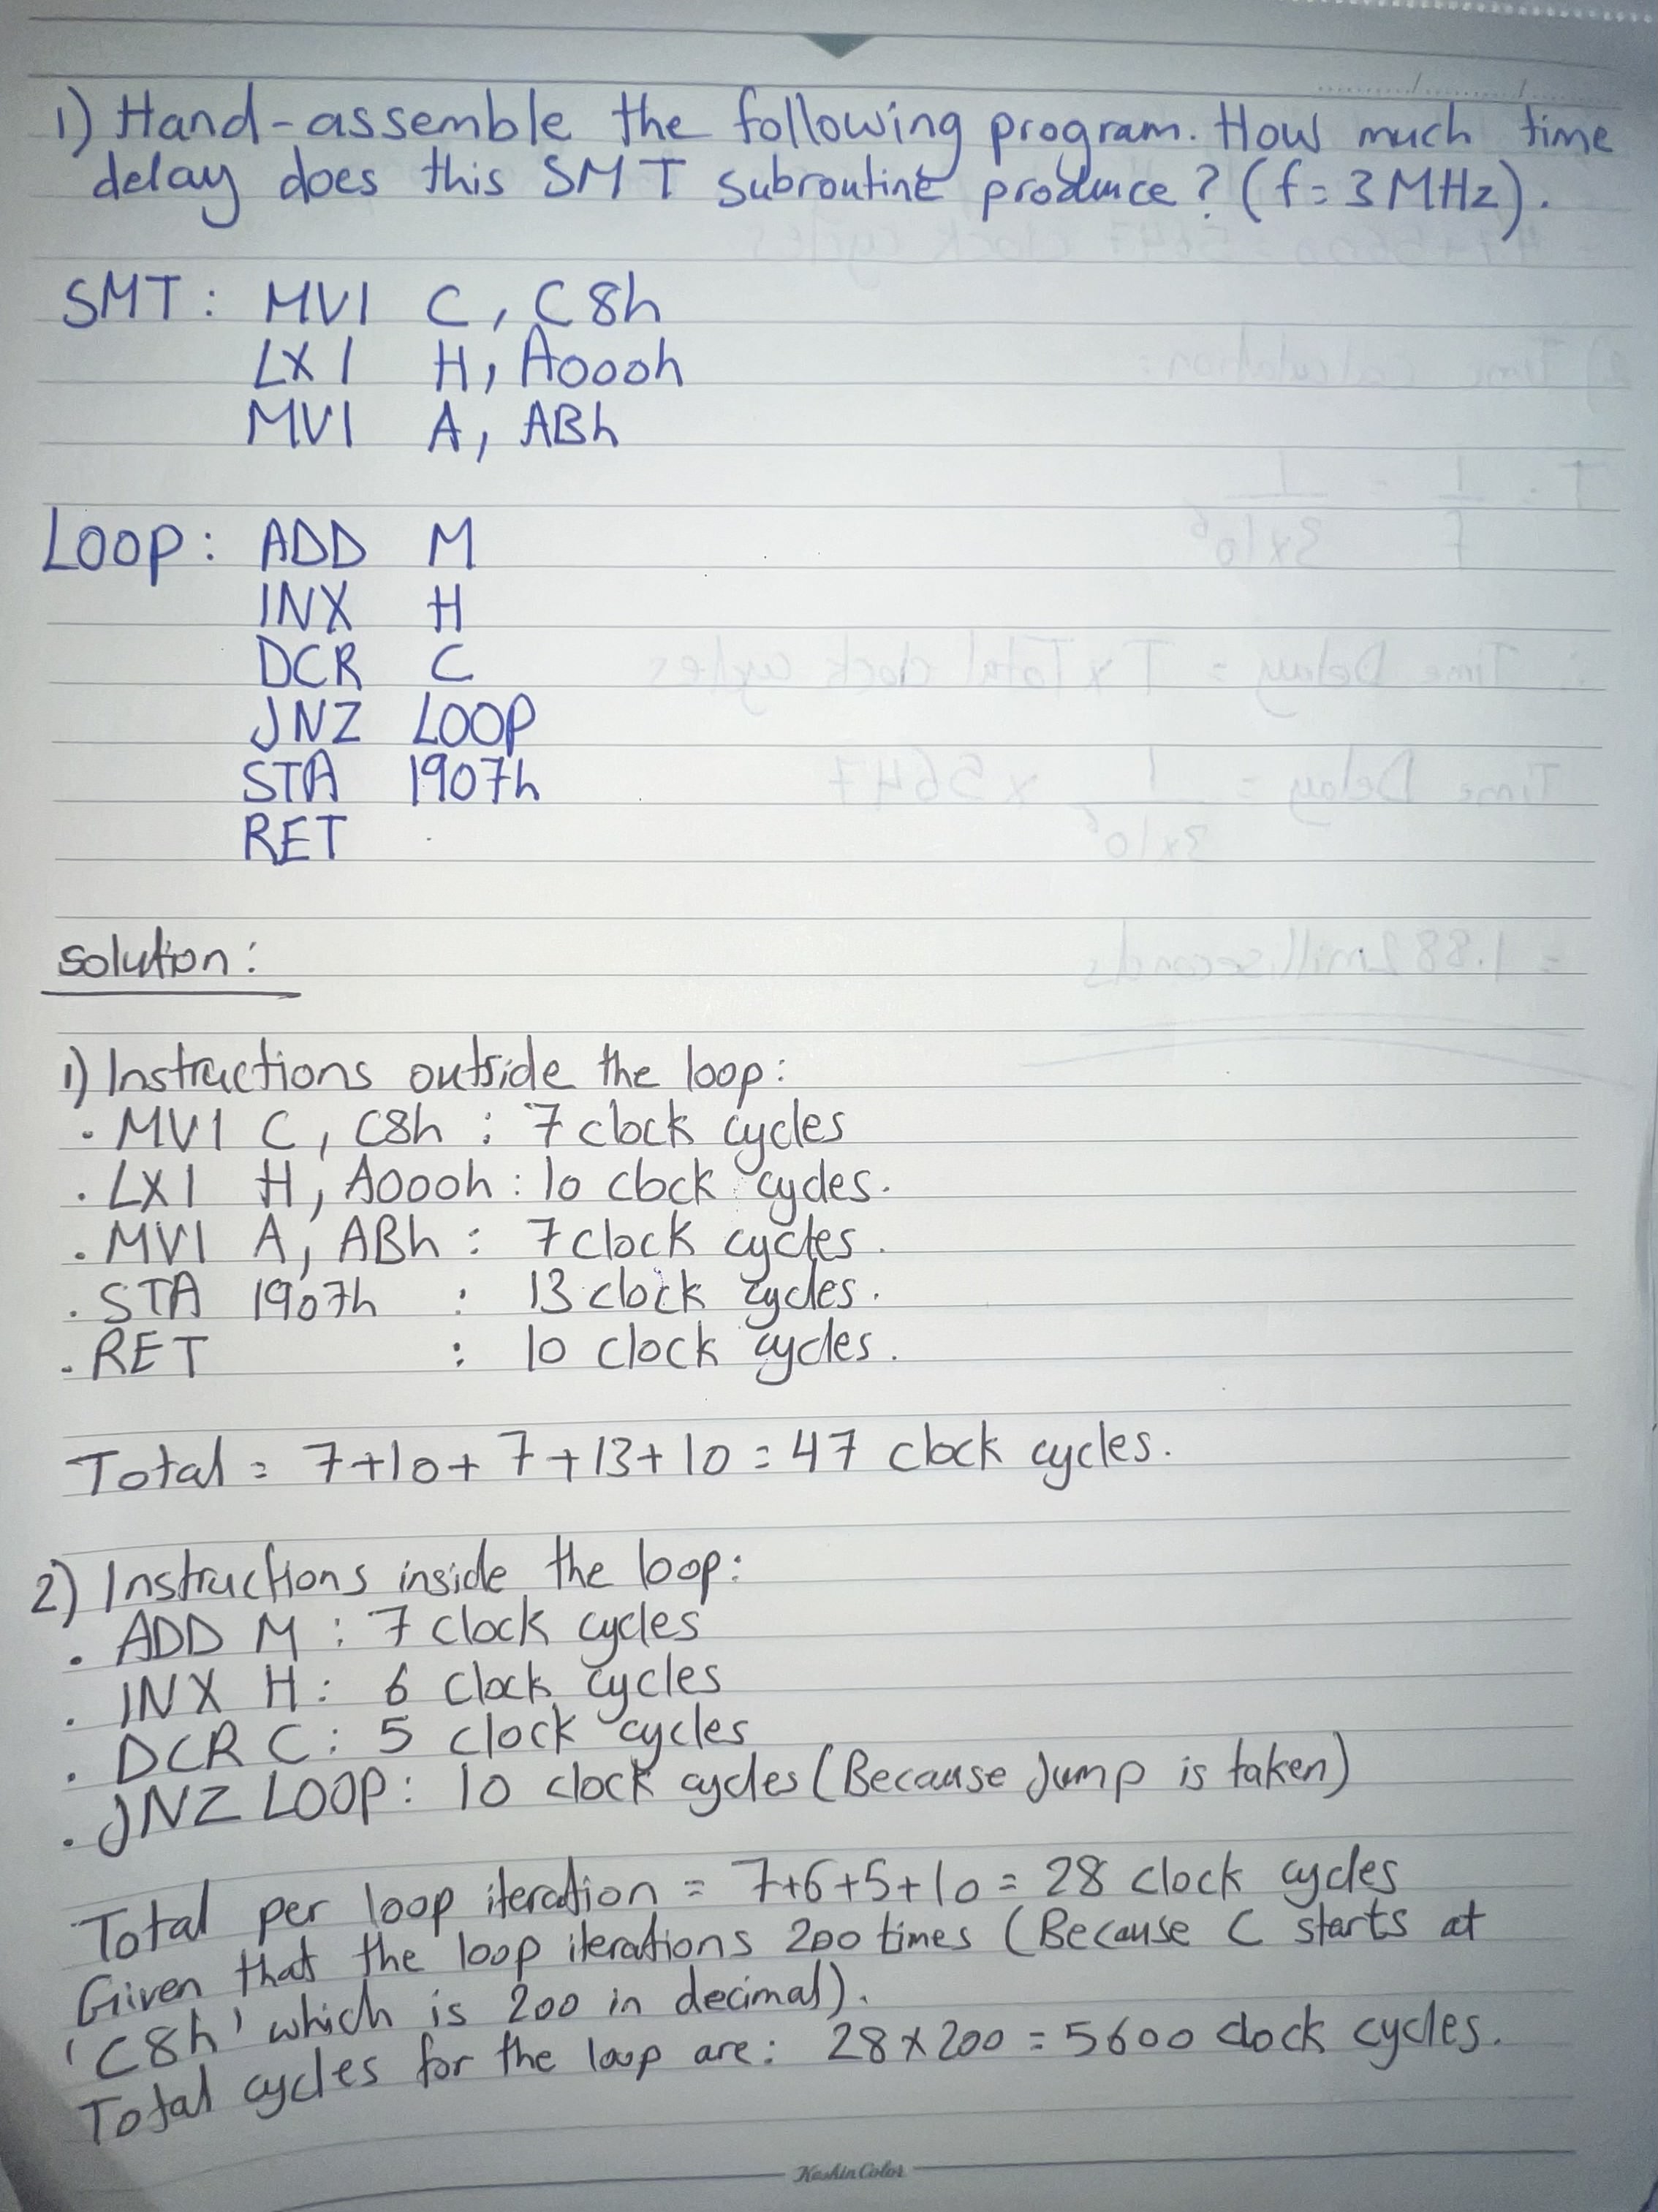 1) Hand-assemble the following program. How much time
delay does this SMT subroutine produce? (f=3MHz).
SMT: MVI C, C8h
LXI H, A000h
MVI A, ABh
LOOP: ADD M
INX H
DCR C
JNZ LOOP
STA 1907h
RET
solution:
1) Instructions outside the loop:
. MVI C, C8h : 7 clock cycles
. LXI H, A000h : 10 clock cycles.
. MVI A, ABh : 7 clock cycles.
. STA 1907h : 13 clock cycles.
. RET : 10 clock cycles.
Total = 7+10+7+13+10 = 47 clock cycles.
2) Instructions inside the loop:
. ADD M : 7 clock cycles
. INX H : 6 clock cycles
. DCR C : 5 clock cycles
. JNZ LOOP : 10 clock cycles (Because Jump is taken)
Total per loop iteration = 7+6+5+10 = 28 clock cycles
Given that the loop iterations 200 times (Because C starts at
'C8h' which is 200 in decimal).
Total cycles for the loop are: 28×200 = 5600 clock cycles.
KashinColor